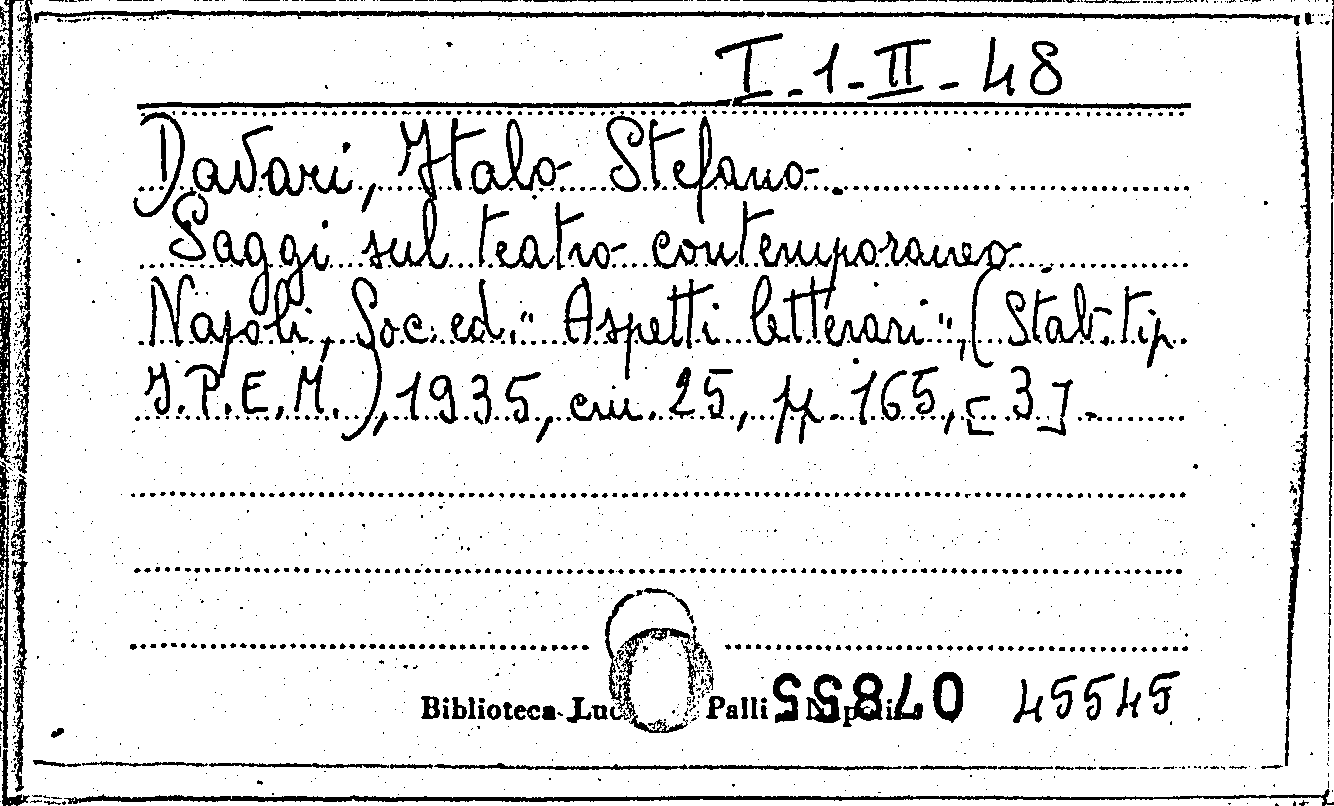 I-1-II-48
Davari, Italo Stefano.
Saggi sul teatro contemporaneo.
Napoli, Soc. ed. "Aspetti letterari", (Stab. tip.
I.P.E.M.), 1935, cm. 25, pp. 165, [3].
Biblioteca Palli Napoli 45545
07855